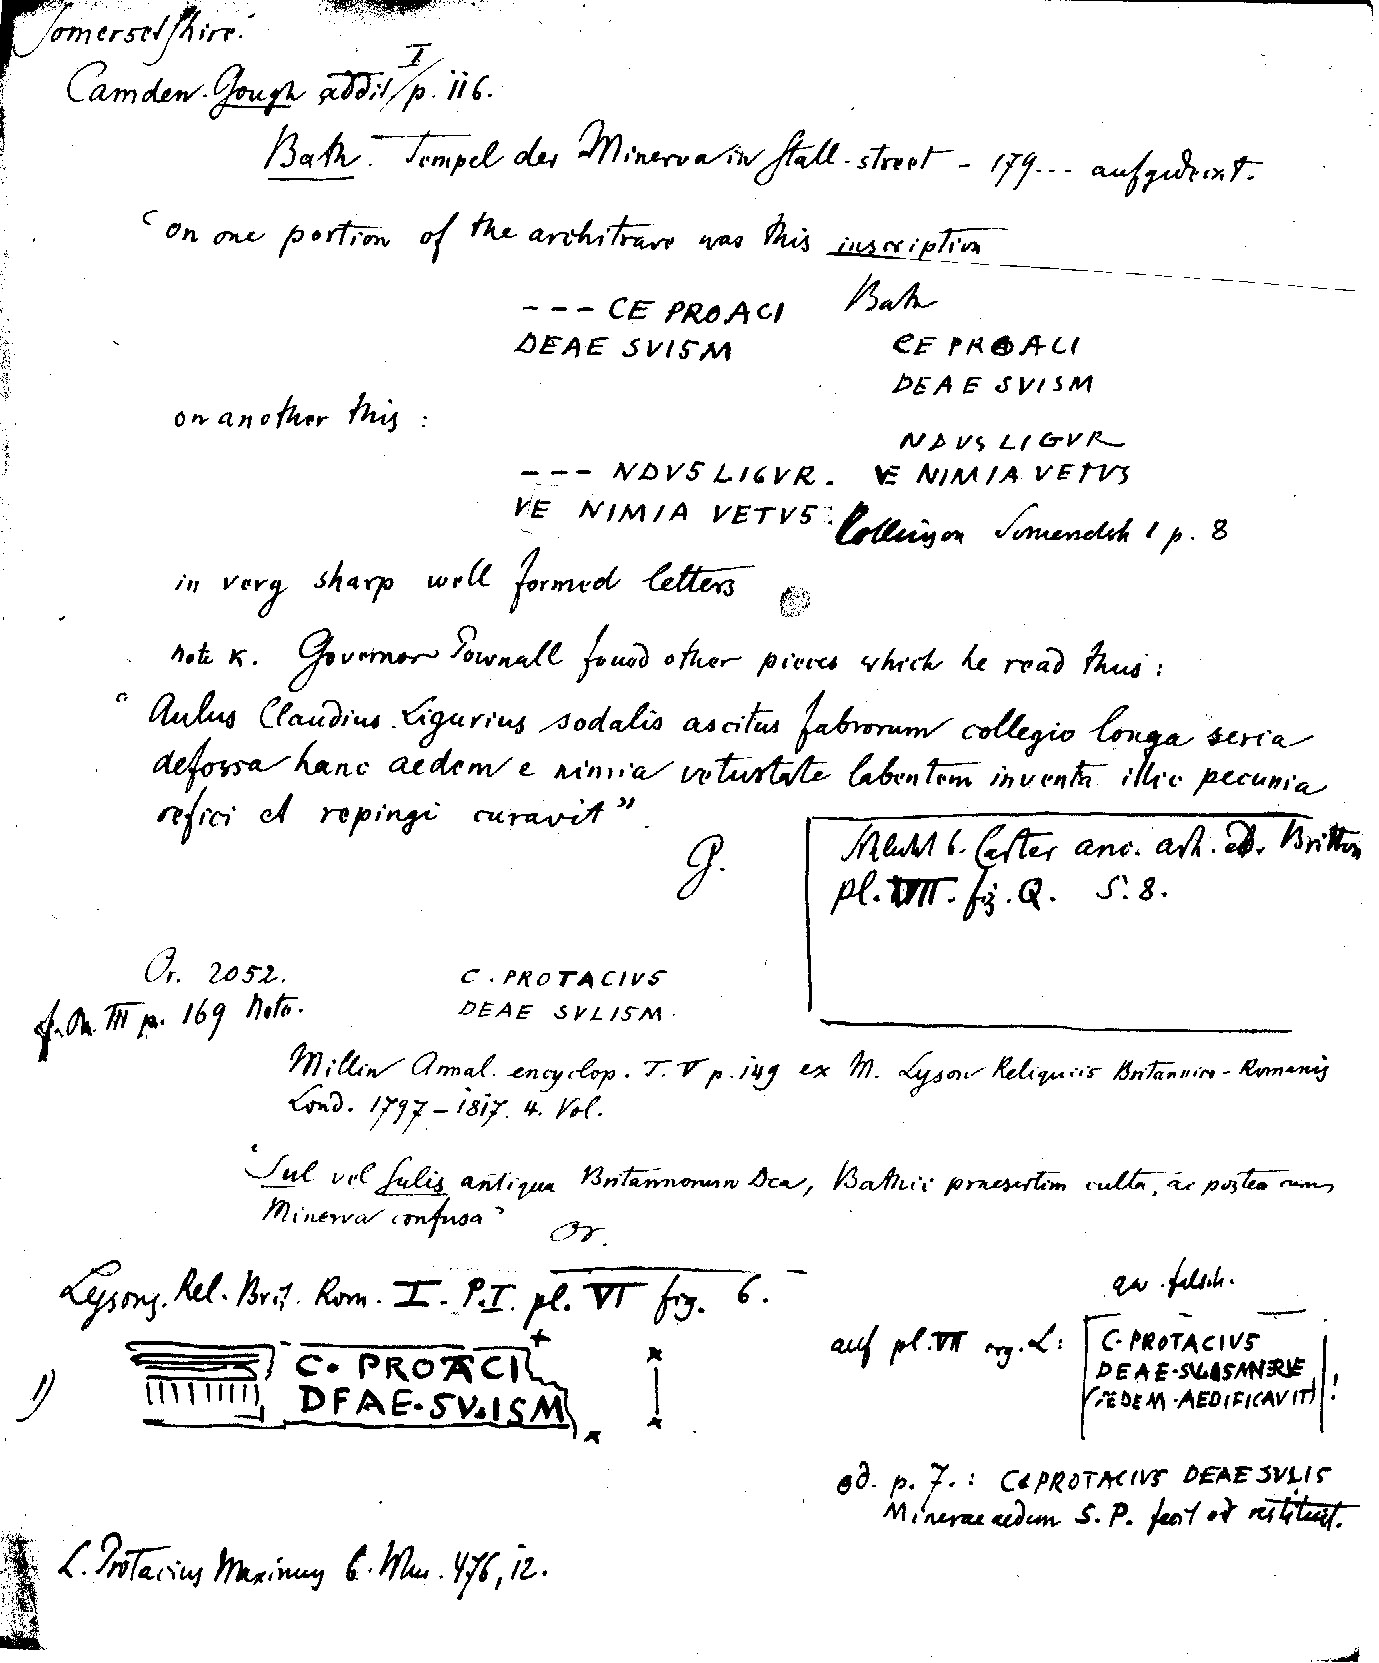 Somersetshire.
Camden. Gough addit I p. 116.
Bath. Tempel der Minerva in Stall-street - 179... aufgedeckt.
"on one portion of the architrave was this inscription
--- CE PROACI
DEAE SVISM
on another this:
--- NDVS LIGVR.
VE NIMIA VETVS:
Bath
CE PROACI
DEAE SVISM
NDVS LIGVR
VE NIMIA VETVS
Collinson Somersetsh 1 p. 8
in very sharp well formed letters
note K. Governor Pownall found other pieces which he read thus:
"Aulus Claudius Ligurius sodalis ascitus fabrorum collegio longa seria
defossa hanc aedem e nimia vetustate labentem inventa illic pecunia
refici et repingi curavit"
G.
b. Carter anc. arch. ed. Britton
pl. VII. fig. Q. S. 8.
Or. 2052.
III p. 169 Note.
C. PROTACIVS
DEAE SVLISM.
Millin Annal. encyclop. T. V p. 149 ex M. Lyson Reliquiis Britannico-Romanis
Lond. 1797-1817. 4. Vol.
"Sul vel Sulis antiqua Britannorum Dea, Bathic praesertim culta, ac postea cum
Minerva confusa"
Or.
Lysons. Rel. Brit. Rom. I. P. I. pl. VI fig. 6.
1)
C. PROACI
DEAE. SV.ISM
falsch.
auf pl. VII L:
C. PROTACIVS
DEAE. SVLIS MINERVE
AEDEM. AEDIFICAVIT !
p. 7.: C PROTACIVS DEAE SVLIS
Minervae aedem S. P. fecit et restituit.
L. Protacius Maximus b. Mur. 476, 12.